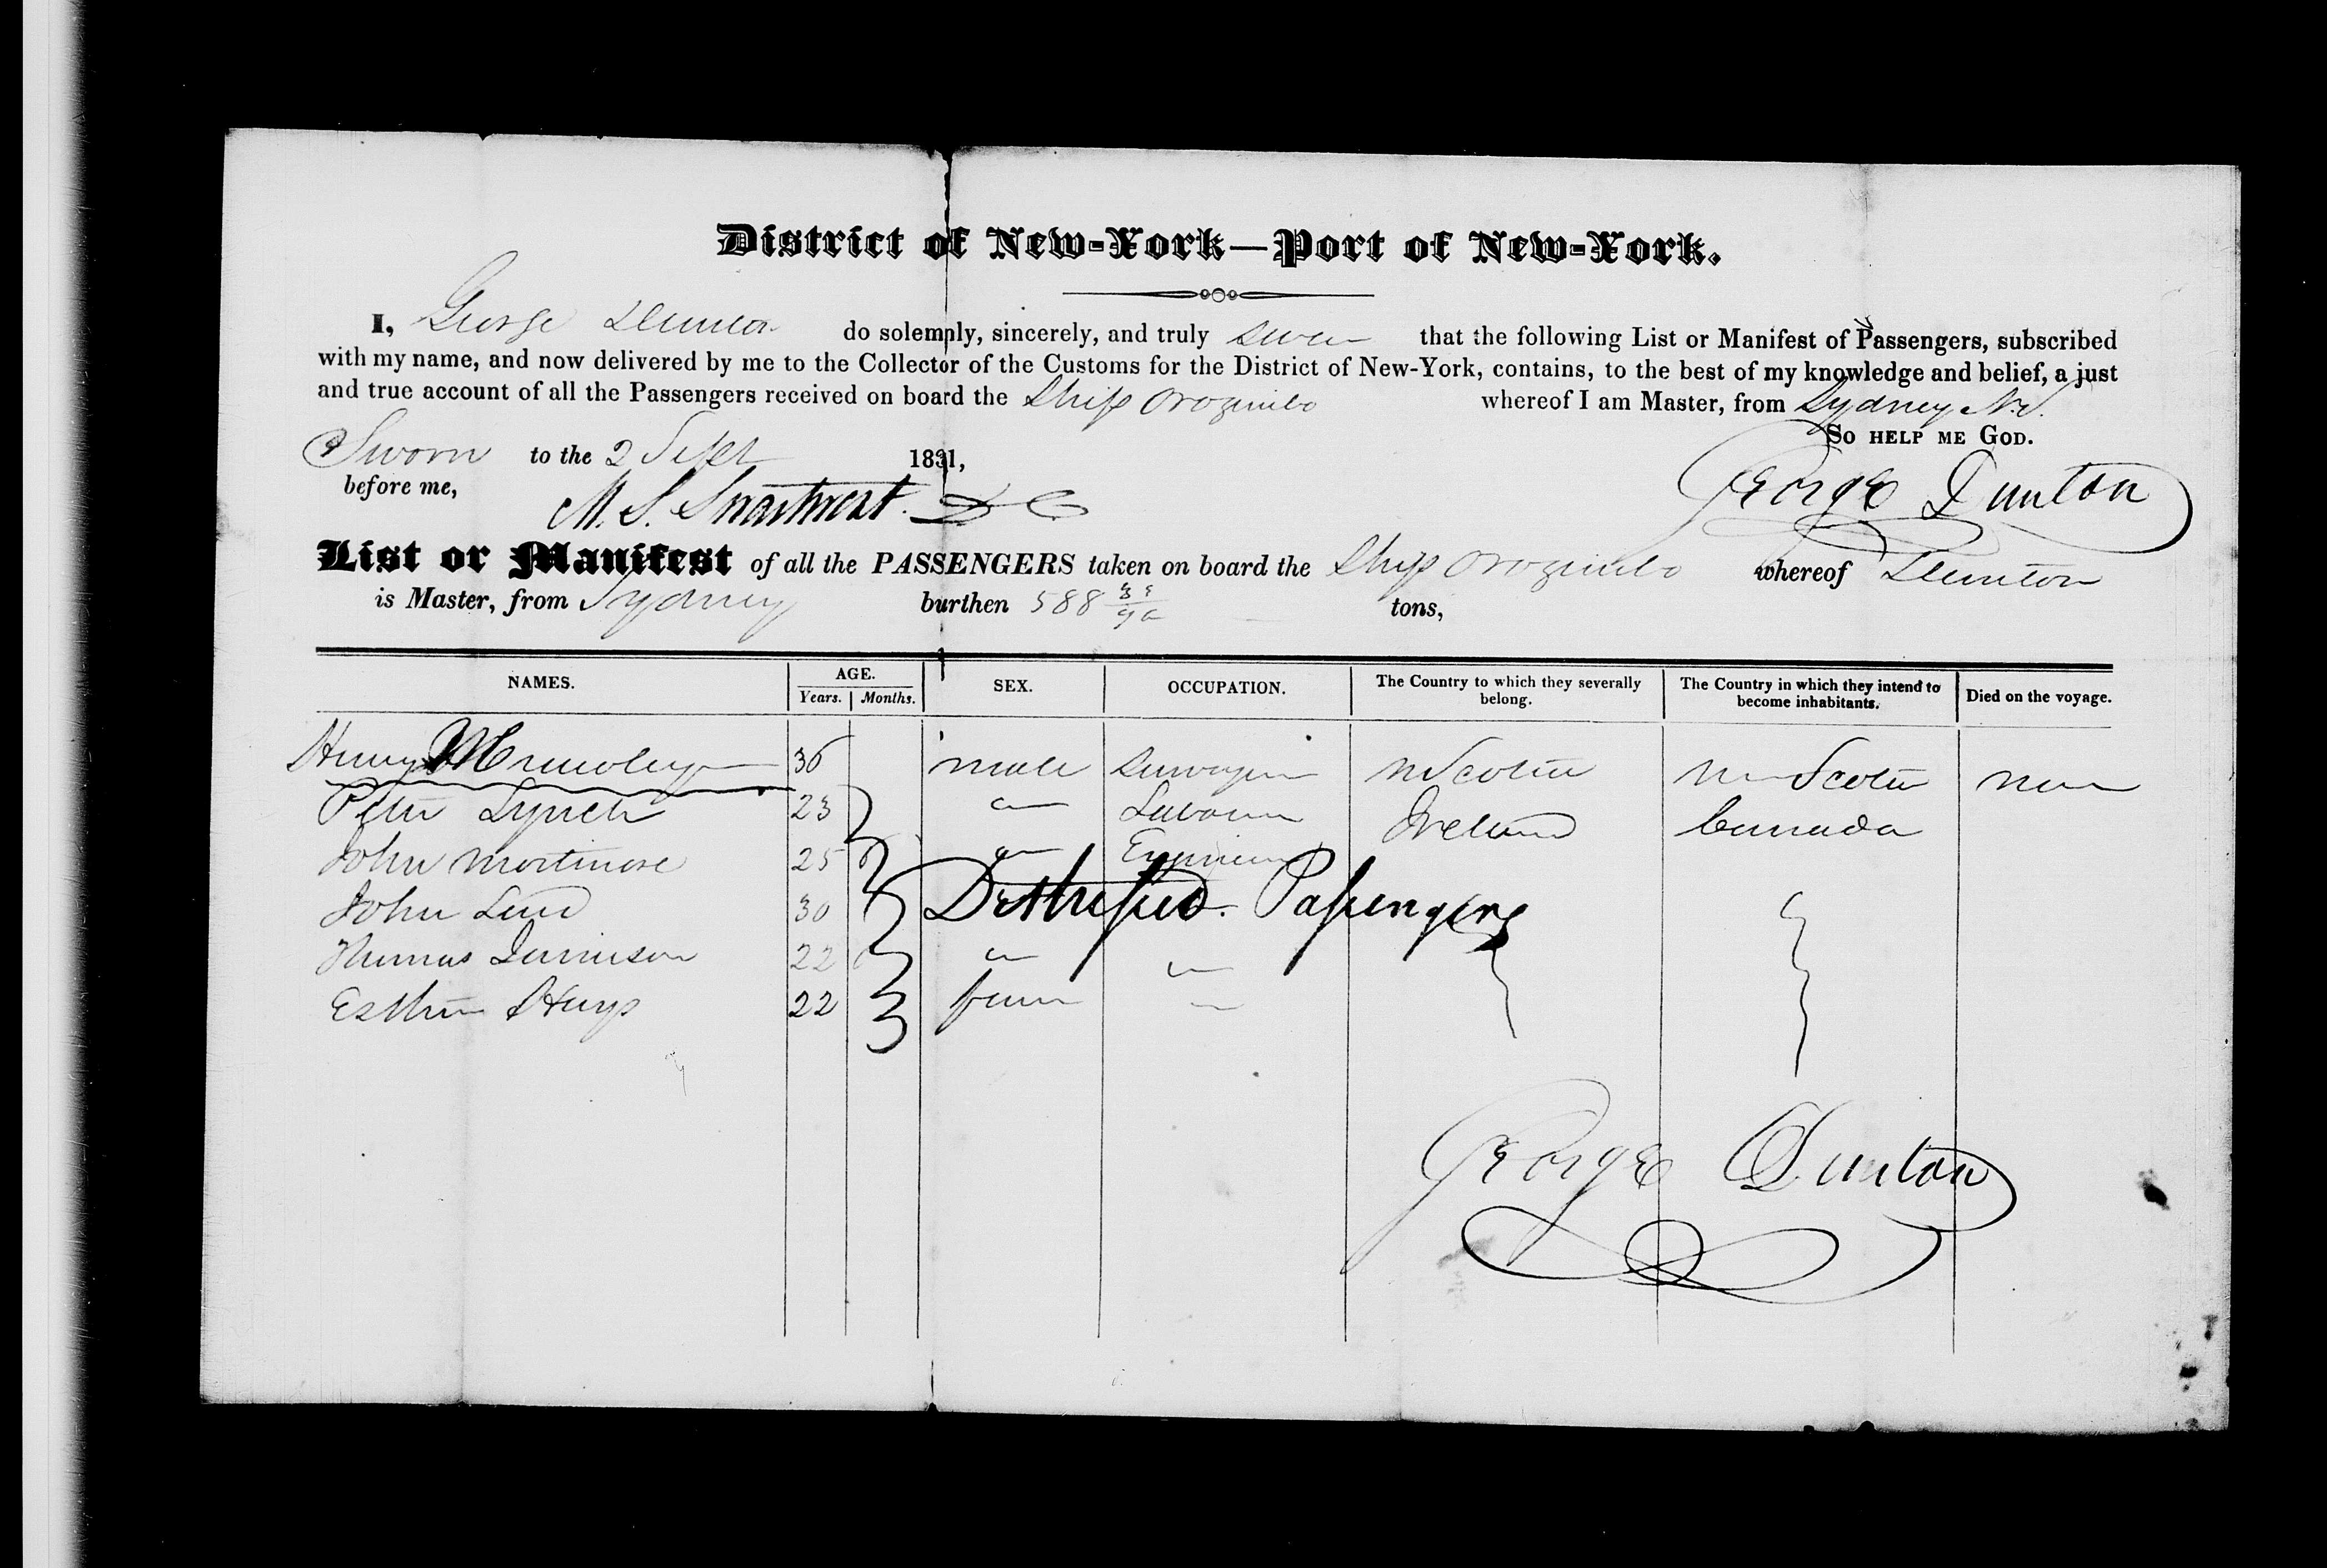 District of New-York—Port of New-York.
I, George Dunton do solemnly, sincerely, and truly swear that the following List or Manifest of Passengers, subscribed
with my name, and now delivered by me to the Collector of the Customs for the District of New-York, contains, to the best of my knowledge and belief, a just
and true account of all the Passengers received on board the Ship Orozimbo whereof I am Master, from Sydney N.S.
So help me God.
Sworn to the 2 Sept 1831,
before me,
M. S. Swartwout D C
George Dunton
List or Manifest of all the PASSENGERS taken on board the Ship Orozimbo whereof Dunton
is Master, from Sydney burthen 588 tons,
NAMES. AGE. Years. Months. SEX. OCCUPATION. The Country to which they severally belong. The Country in which they intend to become inhabitants. Died on the voyage.
Henry 36 male N Scotia N Scotia
Peter Lynch 23 Labourer Ireland Canada
John Mortimore 25
John 30 Distressed Passengers
Thomas Jamieson 22
Esther Hays 22
George Dunton